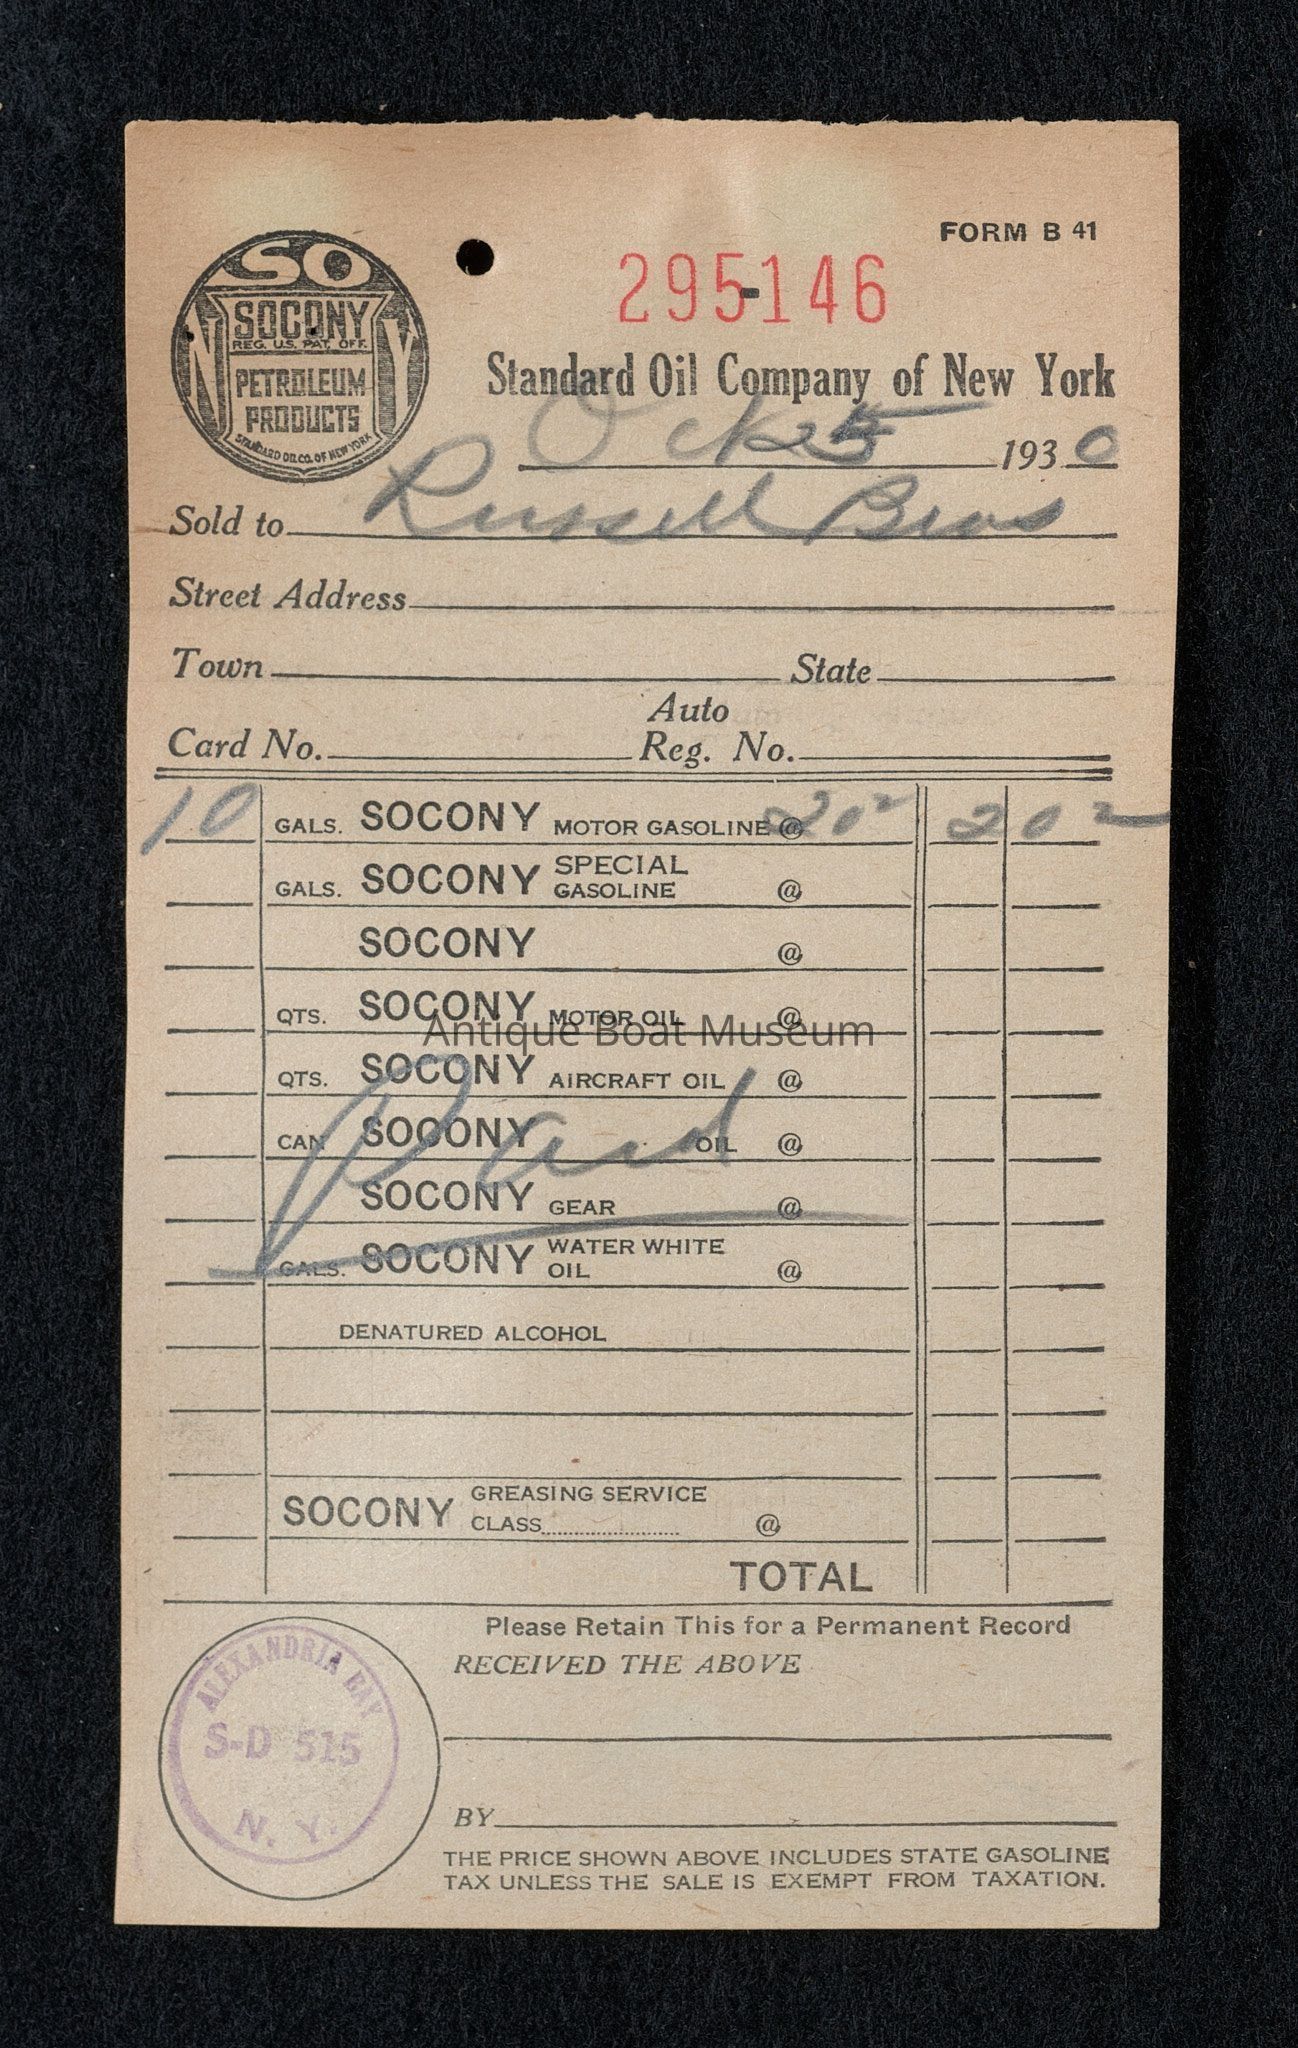 FORM B 41
SO
N Y
SOCONY
REG. U.S. PAT. OFF.
PETROLEUM
PRODUCTS
STANDARD OIL CO. OF NEW YORK
295146
Standard Oil Company of New York
Oct 1930
Sold to Russell Bros
Street Address
Town State
Card No. Auto Reg. No.
10 GALS. SOCONY MOTOR GASOLINE @ 20² 2 02
GALS. SOCONY SPECIAL GASOLINE @
SOCONY @
QTS. SOCONY MOTOR OIL @
Antique Boat Museum
QTS. SOCONY AIRCRAFT OIL @
CAN SOCONY OIL @
Paid
SOCONY GEAR @
GALS. SOCONY WATER WHITE OIL @
DENATURED ALCOHOL
SOCONY GREASING SERVICE
CLASS @
TOTAL
Please Retain This for a Permanent Record
RECEIVED THE ABOVE
ALEXANDRIA BAY
S-D 515
N. Y.
BY
THE PRICE SHOWN ABOVE INCLUDES STATE GASOLINE
TAX UNLESS THE SALE IS EXEMPT FROM TAXATION.